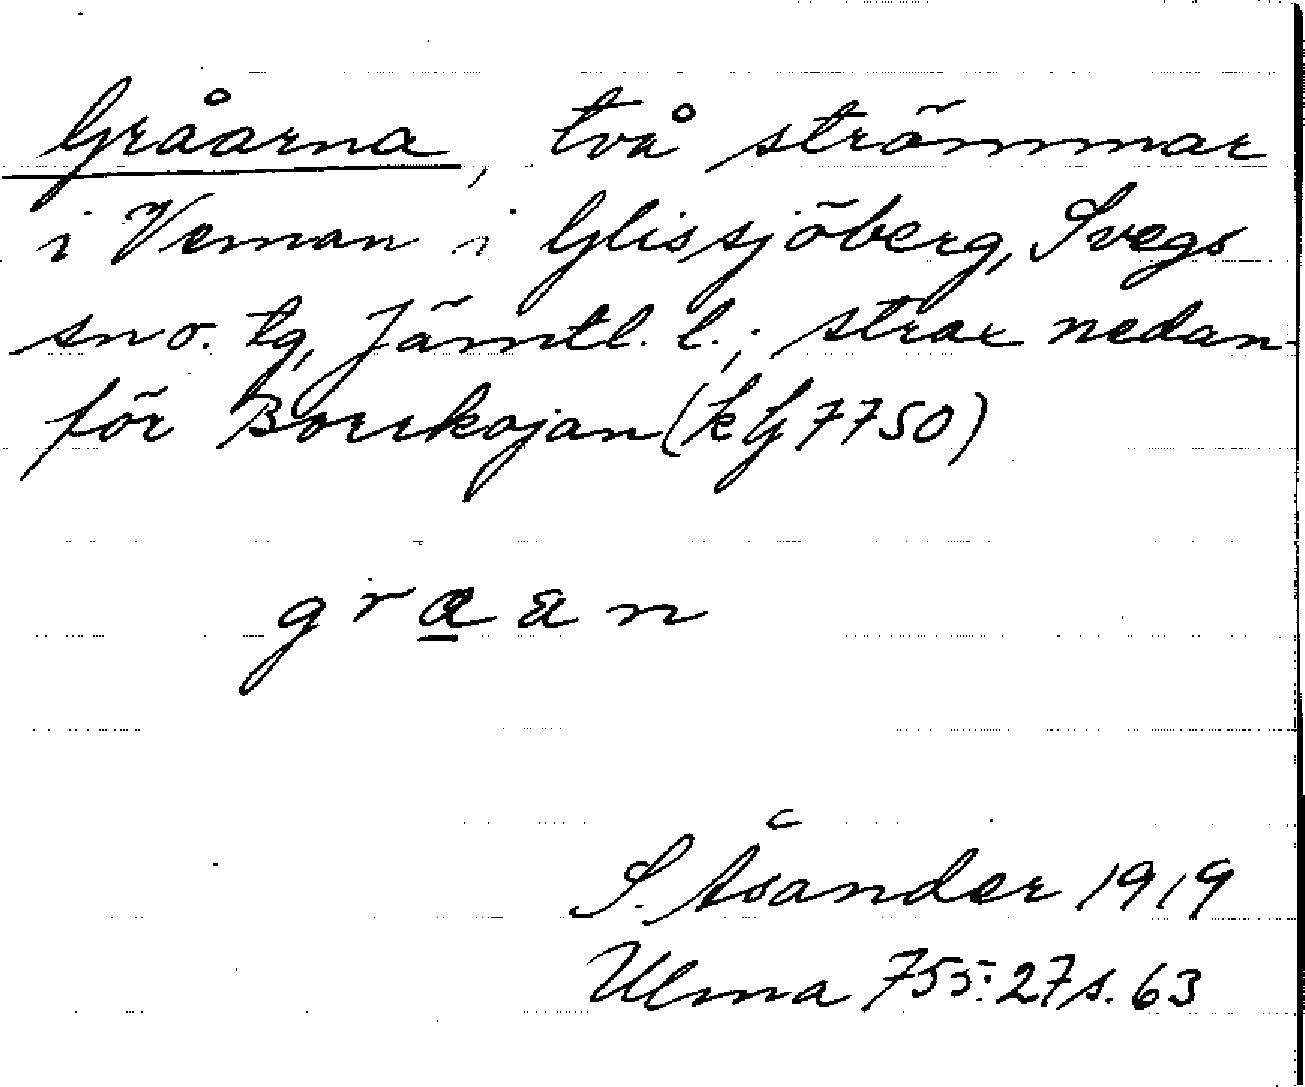 Gråarna, två strömmar
i Veman i Glissjöberg, Svegs
sn o. tg, Jämtl. l.; strax nedan-
för Borrkojan (kG7750)
g r a a n
S. Åsander 1919
Ulma 755:27 s. 63